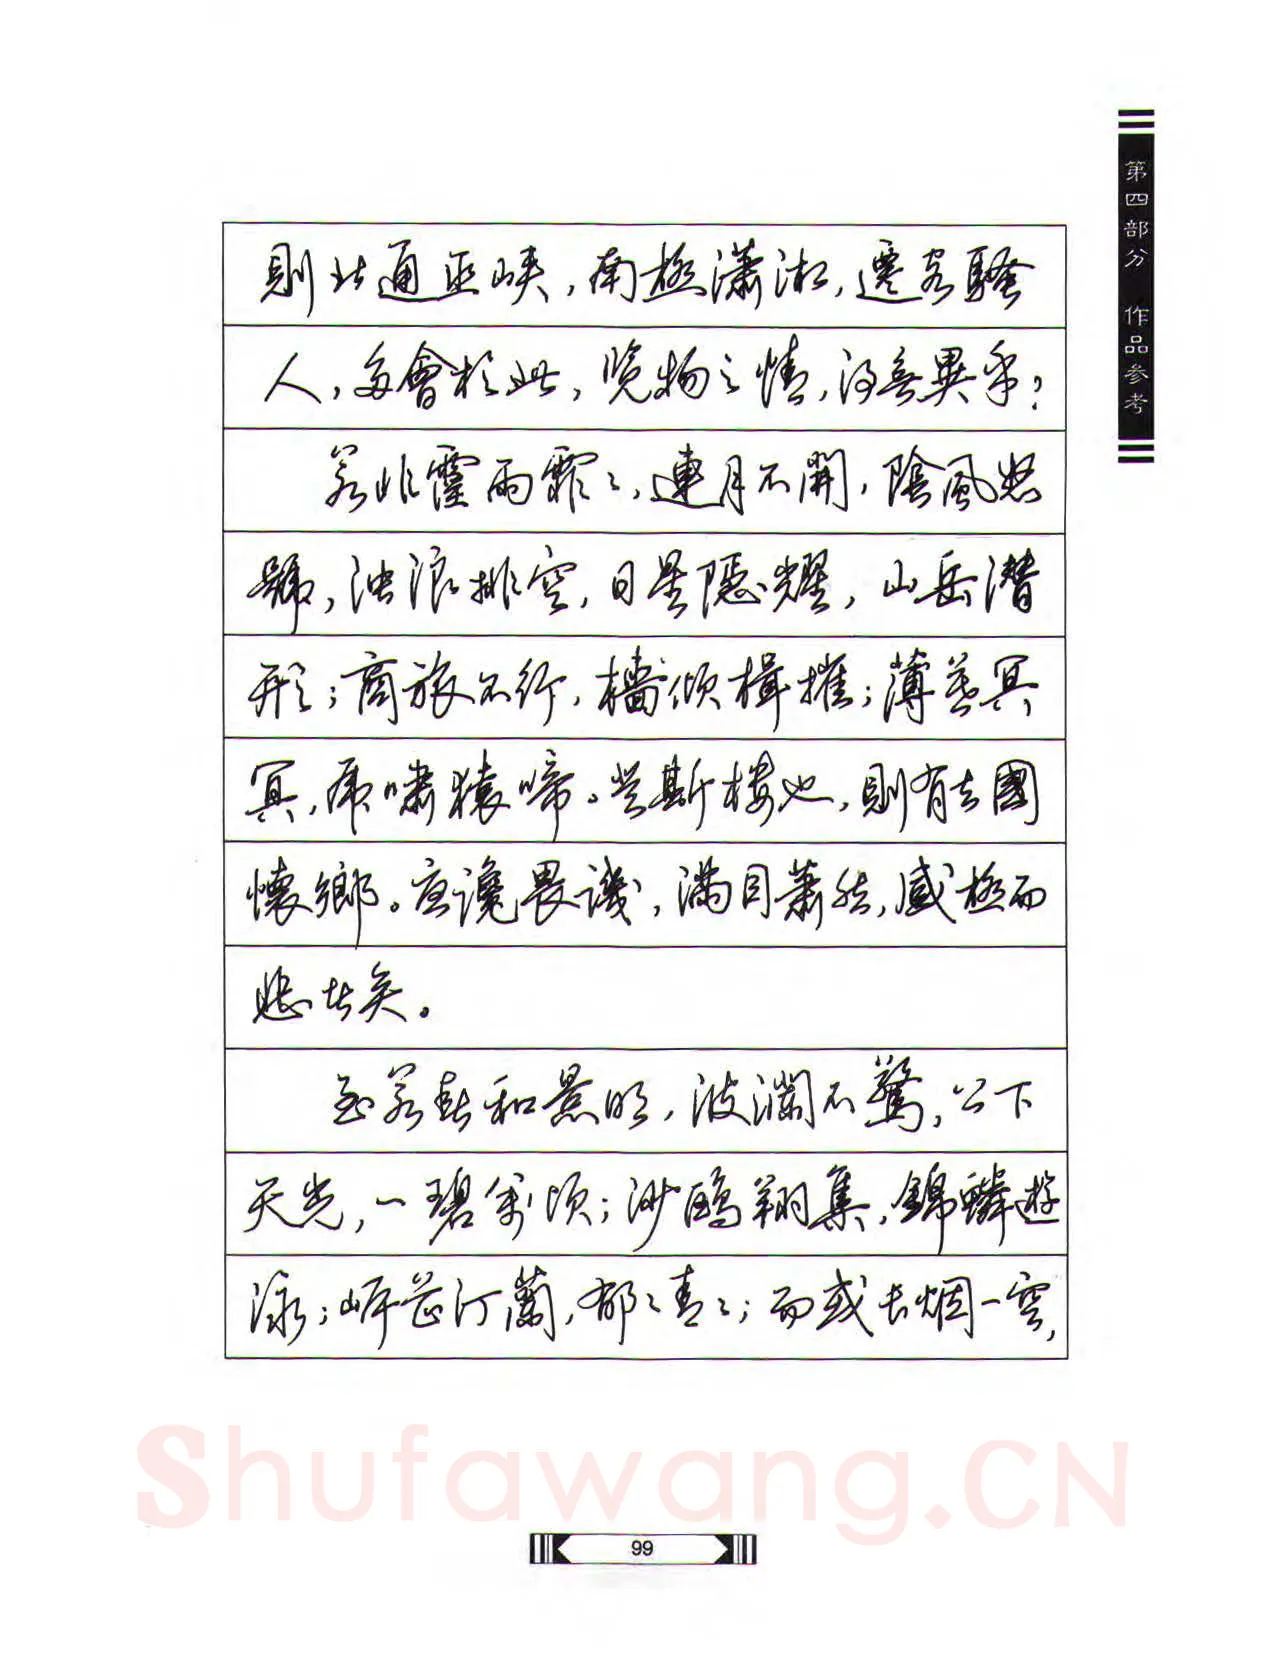 第四部分 作品参考
則北通巫峽，南極瀟湘，遷客騷
人，多會於此，覽物之情，得無異乎？
若非霪雨霏〻，連月不開，陰風怒
號，浊浪排空，日星隱耀，山岳潛
形；商旅不行，檣傾楫摧；薄暮冥
冥，虎嘯猿啼。登斯樓也，則有去國
懷鄉。憂讒畏譏，滿目蕭然，感極而
悲者矣。
至若春和景明，波瀾不驚，上下
天光，一碧萬頃；沙鷗翔集，錦鱗遊
泳；岸芷汀蘭，郁〻青〻；而或長烟一空，
Shufawang.CN
99